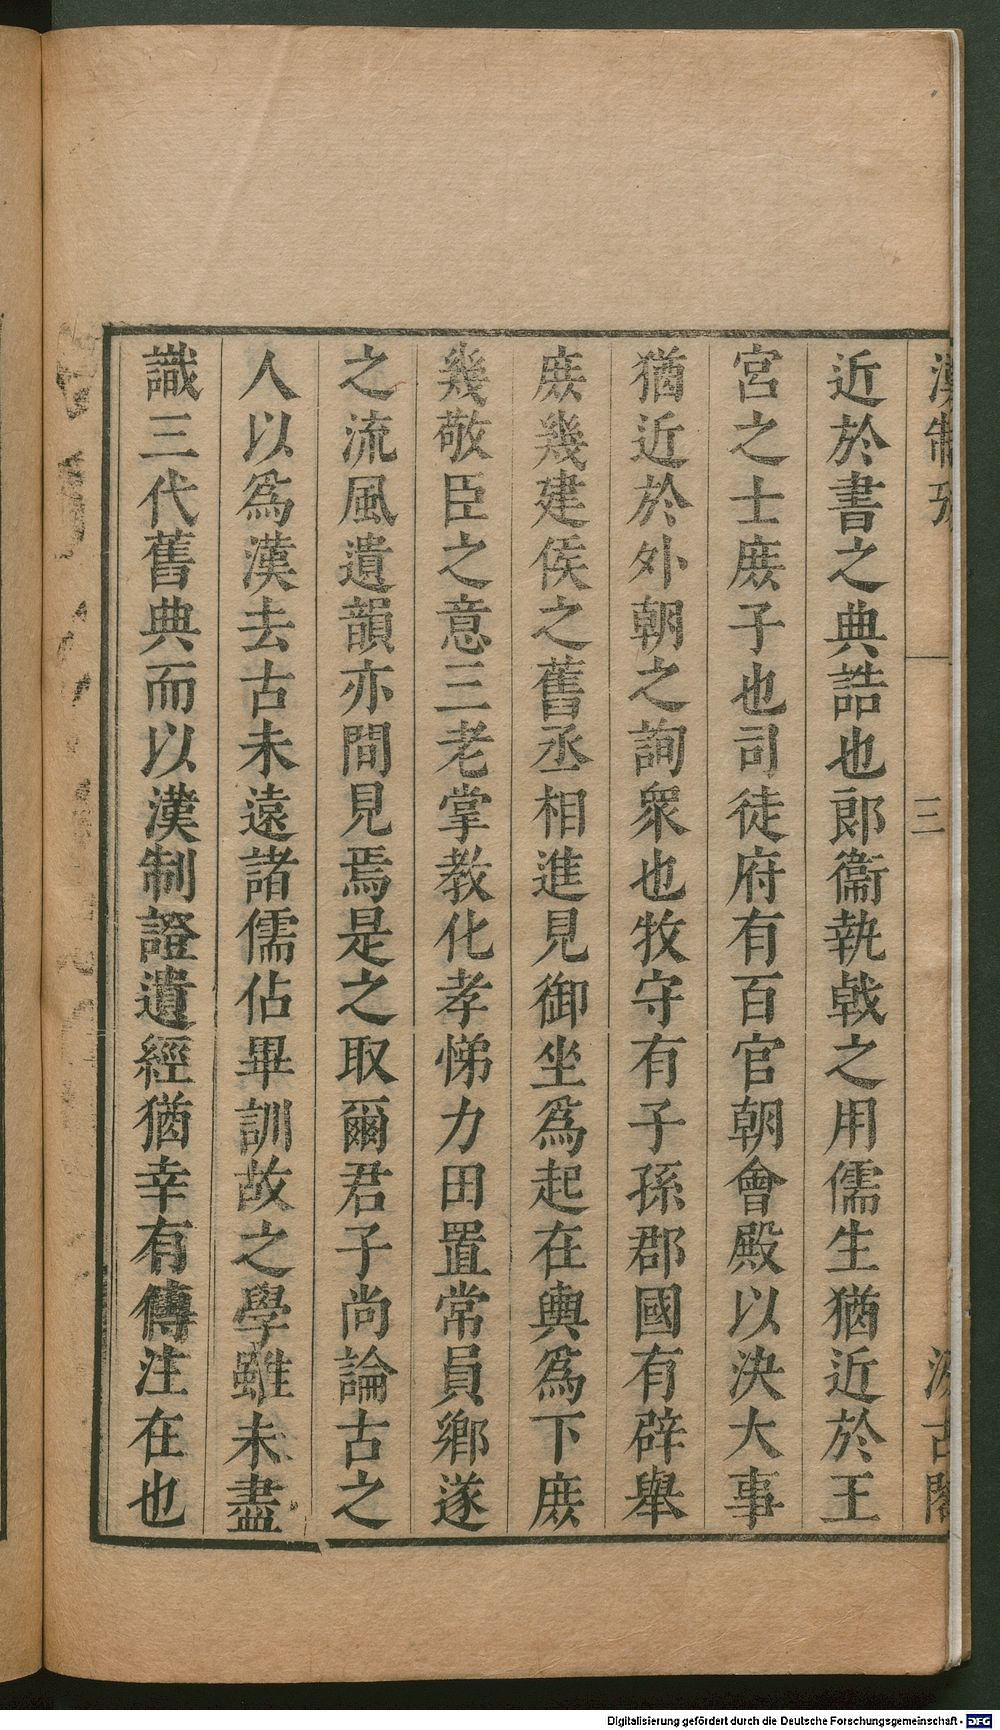 漢制攷
三
汲古閣
近於書之典誥也郎衞執戟之用儒生猶近於王
宮之士庶子也司徒府有百官朝會殿以決大事
猶近於外朝之詢衆也牧守有子孫郡國有辟舉
庶幾建侯之舊丞相進見御坐爲起在輿爲下庶
幾敬臣之意三老掌教化孝悌力田置常員鄉遂
之流風遺韻亦間見焉是之取爾君子尚論古之
人以爲漢去古未遠諸儒佔畢訓故之學雖未盡
識三代舊典而以漢制證遺經猶幸有傳注在也
Digitalisierung gefördert durch die Deutsche Forschungsgemeinschaft - DFG